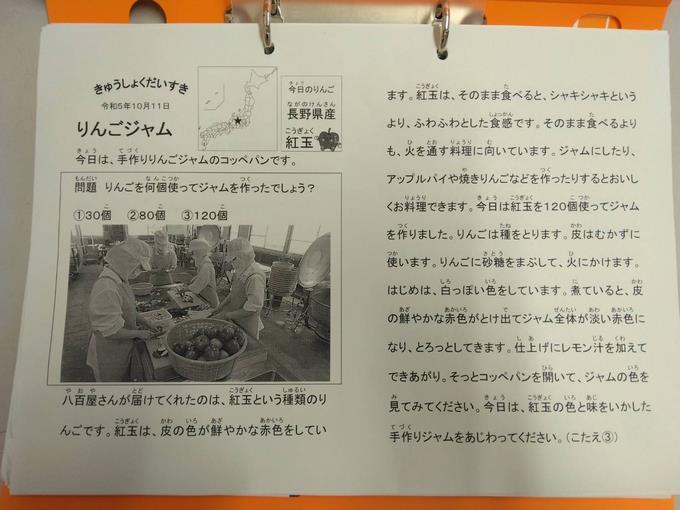 きゅうしょくだいすき
令和5年10月11日
りんごジャム
今日のりんご
長野県産
紅玉
今日は、手作りりんごジャムのコッペパンです。
問題 りんごを何個使ってジャムを作ったでしょう？
①30個 ②80個 ③120個
八百屋さんが届けてくれたのは、紅玉という種類のり
んごです。紅玉は、皮の色が鮮やかな赤色をしてい
ます。紅玉は、そのまま食べると、シャキシャキという
より、ふわふわとした食感です。そのまま食べるより
も、火を通す料理に向いています。ジャムにしたり、
アップルパイや焼きりんごなどを作ったりするとおいし
くお料理できます。今日は紅玉を120個使ってジャム
を作りました。りんごは種をとります。皮はむかずに
使います。りんごに砂糖をまぶして、火にかけます。
はじめは、白っぽい色をしています。煮ていると、皮
の鮮やかな赤色がとけ出てジャム全体が淡い赤色に
なり、とろっとしてきます。仕上げにレモン汁を加えて
できあがり。そっとコッペパンを開いて、ジャムの色を
見てみてください。今日は、紅玉の色と味をいかした
手作りジャムをあじわってください。（こたえ③）